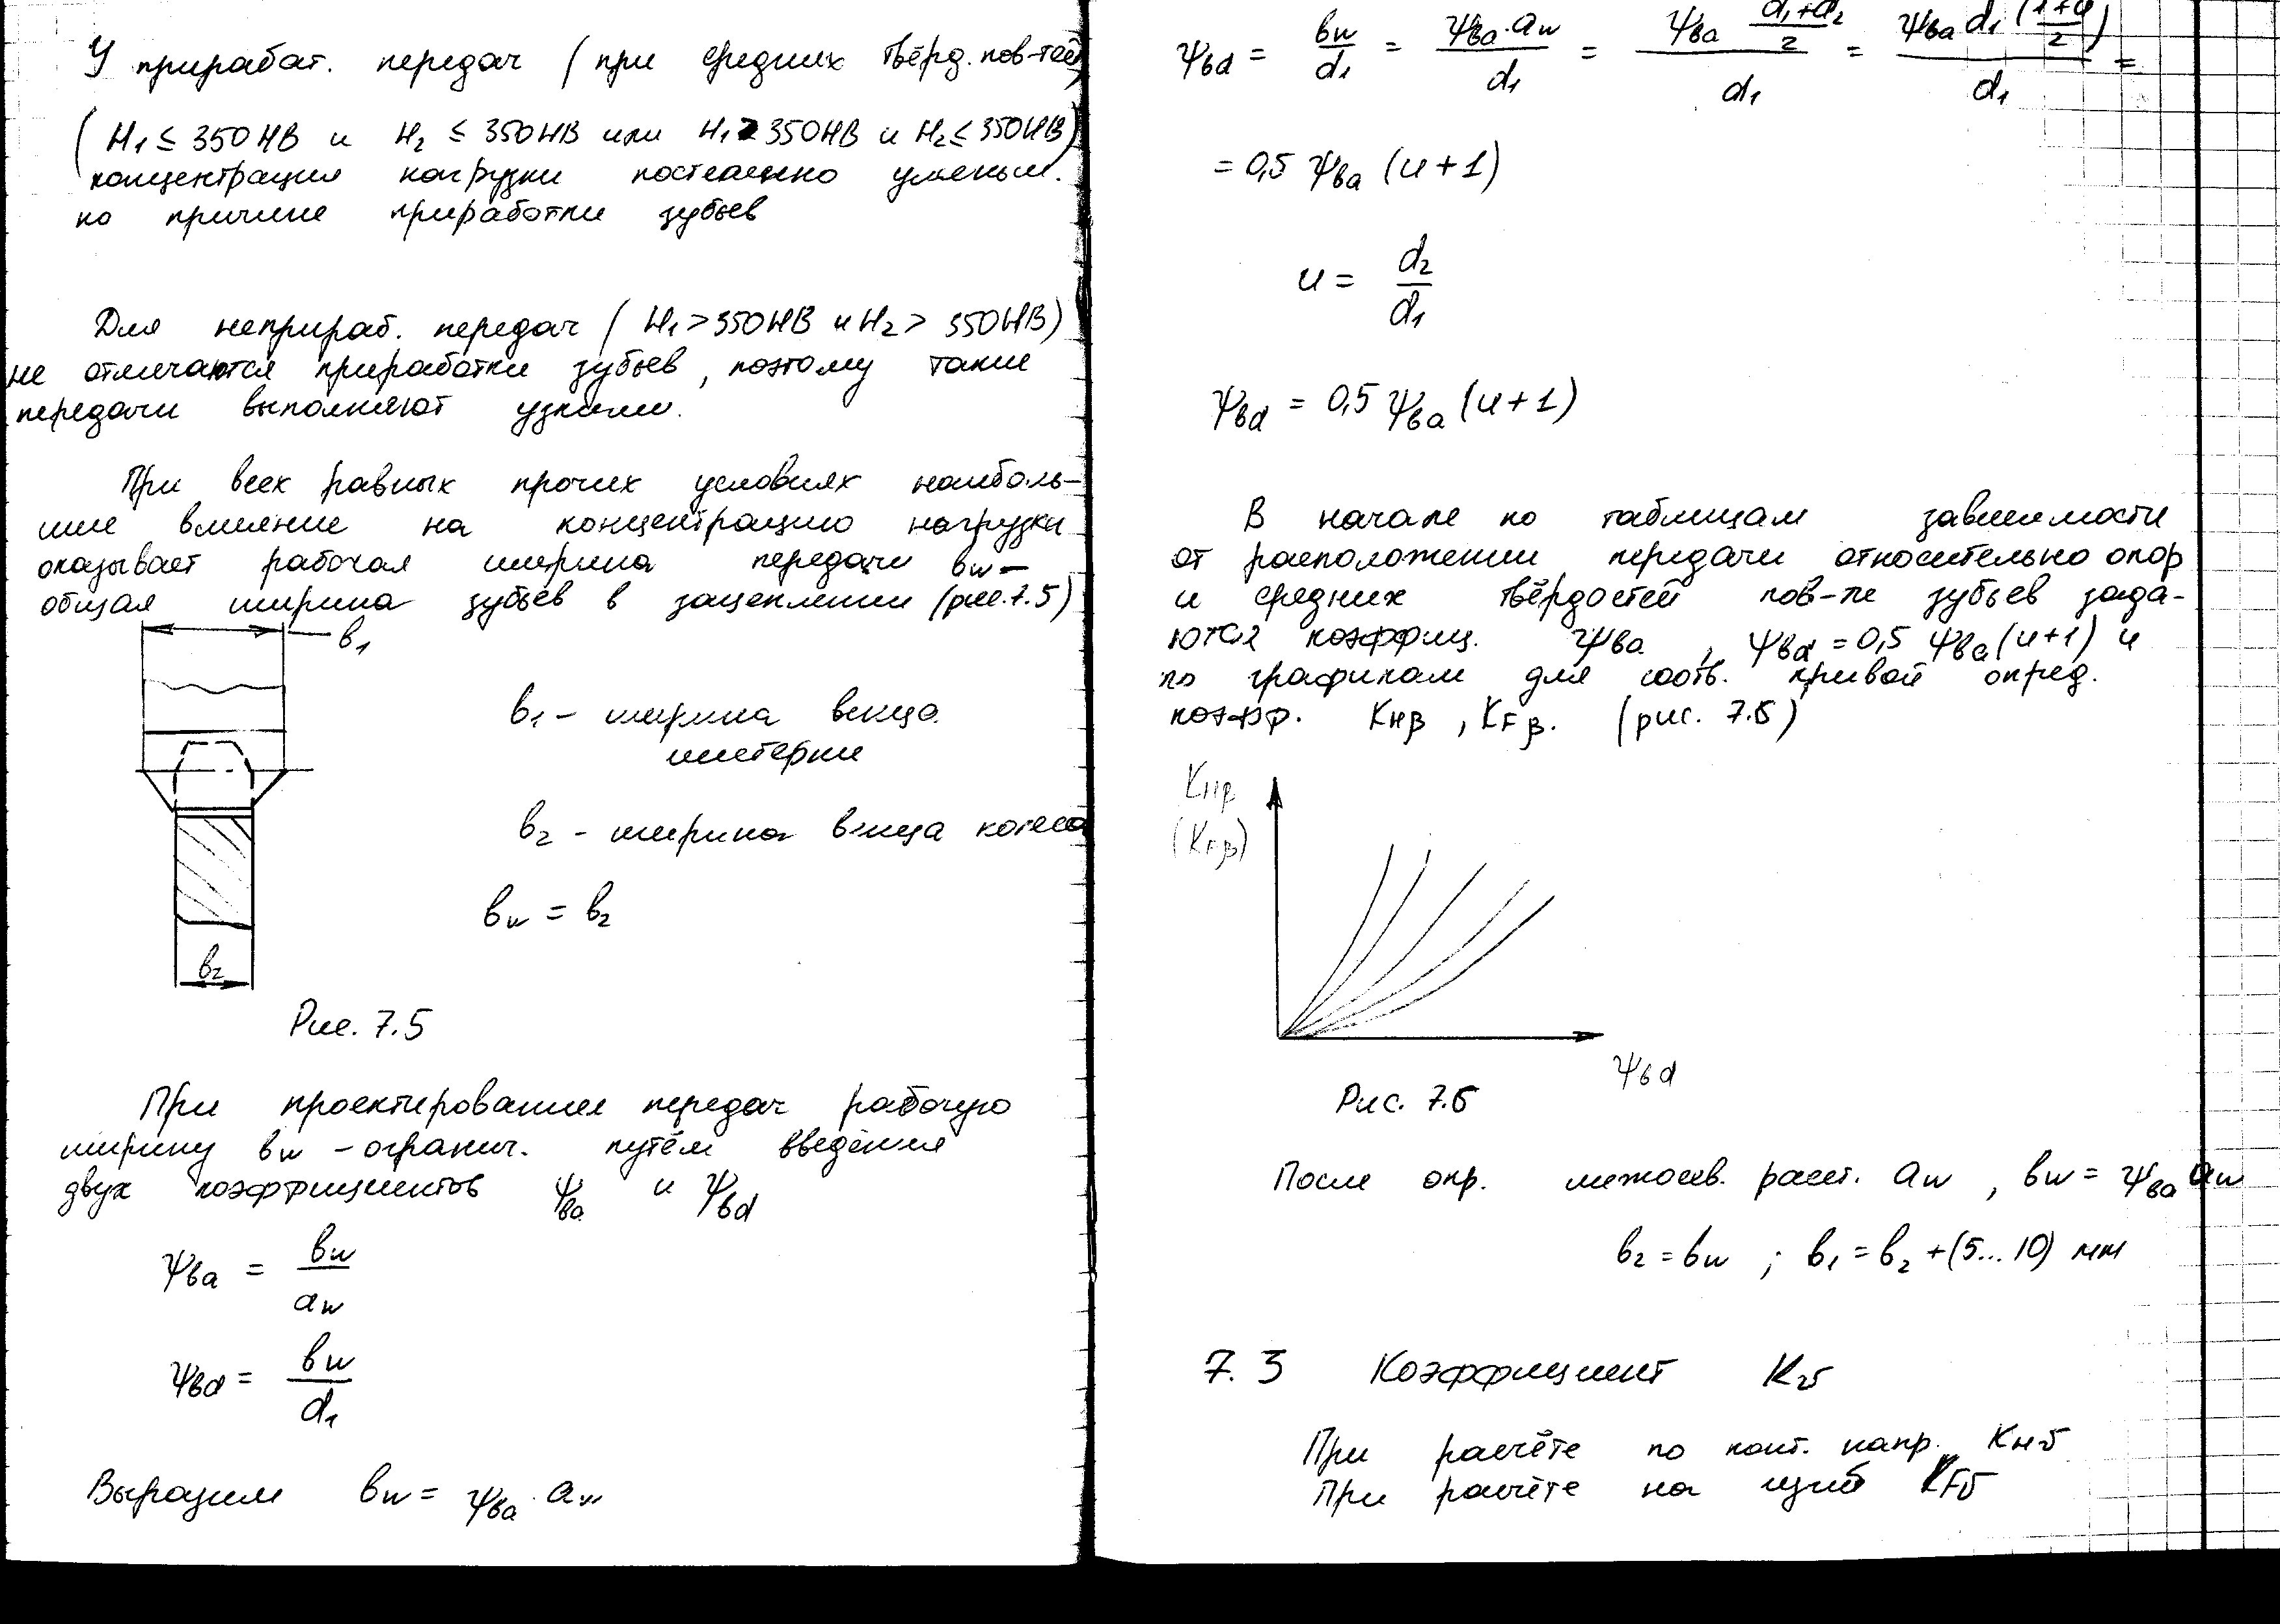 У прирабат. передач (при средних твёрд. пов-тей)
(H₁ ≤ 350HB и H₂ ≤ 350HB или H₁ > 350HB и H₂ ≤ 350HB)
концентрация нагрузки постепенно уменьш.
по причине приработки зубьев
Для неприраб. передач (H₁ > 350HB и H₂ > 350HB)
не отличаются приработки зубьев, поэтому такие
передачи выполняют узкими.
При всех равных прочих условиях наиболь-
шие влияние на концентрацию нагрузки
оказывает рабочая ширина передачи bw –
общая ширина зубьев в зацеплении (рис. 7.5)
b₁
b₁ – ширина венца
шестерни
b₂ – ширина венца колеса
bw = b₂
b₂
Рис. 7.5
При проектировании передач рабочую
ширину bw – огранич. путём введения
двух коэффициентов ψba и ψbd
ψba = bw / aw
ψbd = bw / d₁
Выразим bw = ψba · aw
ψbd = bw / d₁ = ψba · aw / d₁ = ψba (d₁+d₂)/2 / d₁ = ψba d₁ ((1+u)/2) / d₁ =
= 0,5 ψba (u + 1)
u = d₂ / d₁
ψbd = 0,5 ψba (u + 1)
В начале по таблицам зависимости
от расположении передачи относительно опор
и средних твёрдостей пов-те зубьев зада-
ются коэффиц. ψba, ψbd = 0,5 ψba (u+1) и
по графикам для соотв. кривой опред.
коэфф. KHβ, KFβ. (рис. 7.6)
KHβ
(KFβ)
ψbd
Рис. 7.6
После опр. межосев. расст. aw, bw = ψba aw
b₂ = bw ; b₁ = b₂ + (5...10) мм
7.3 Коэффициент Kv
При расчёте по конт. напр. KHv
При расчёте на изгиб KFv